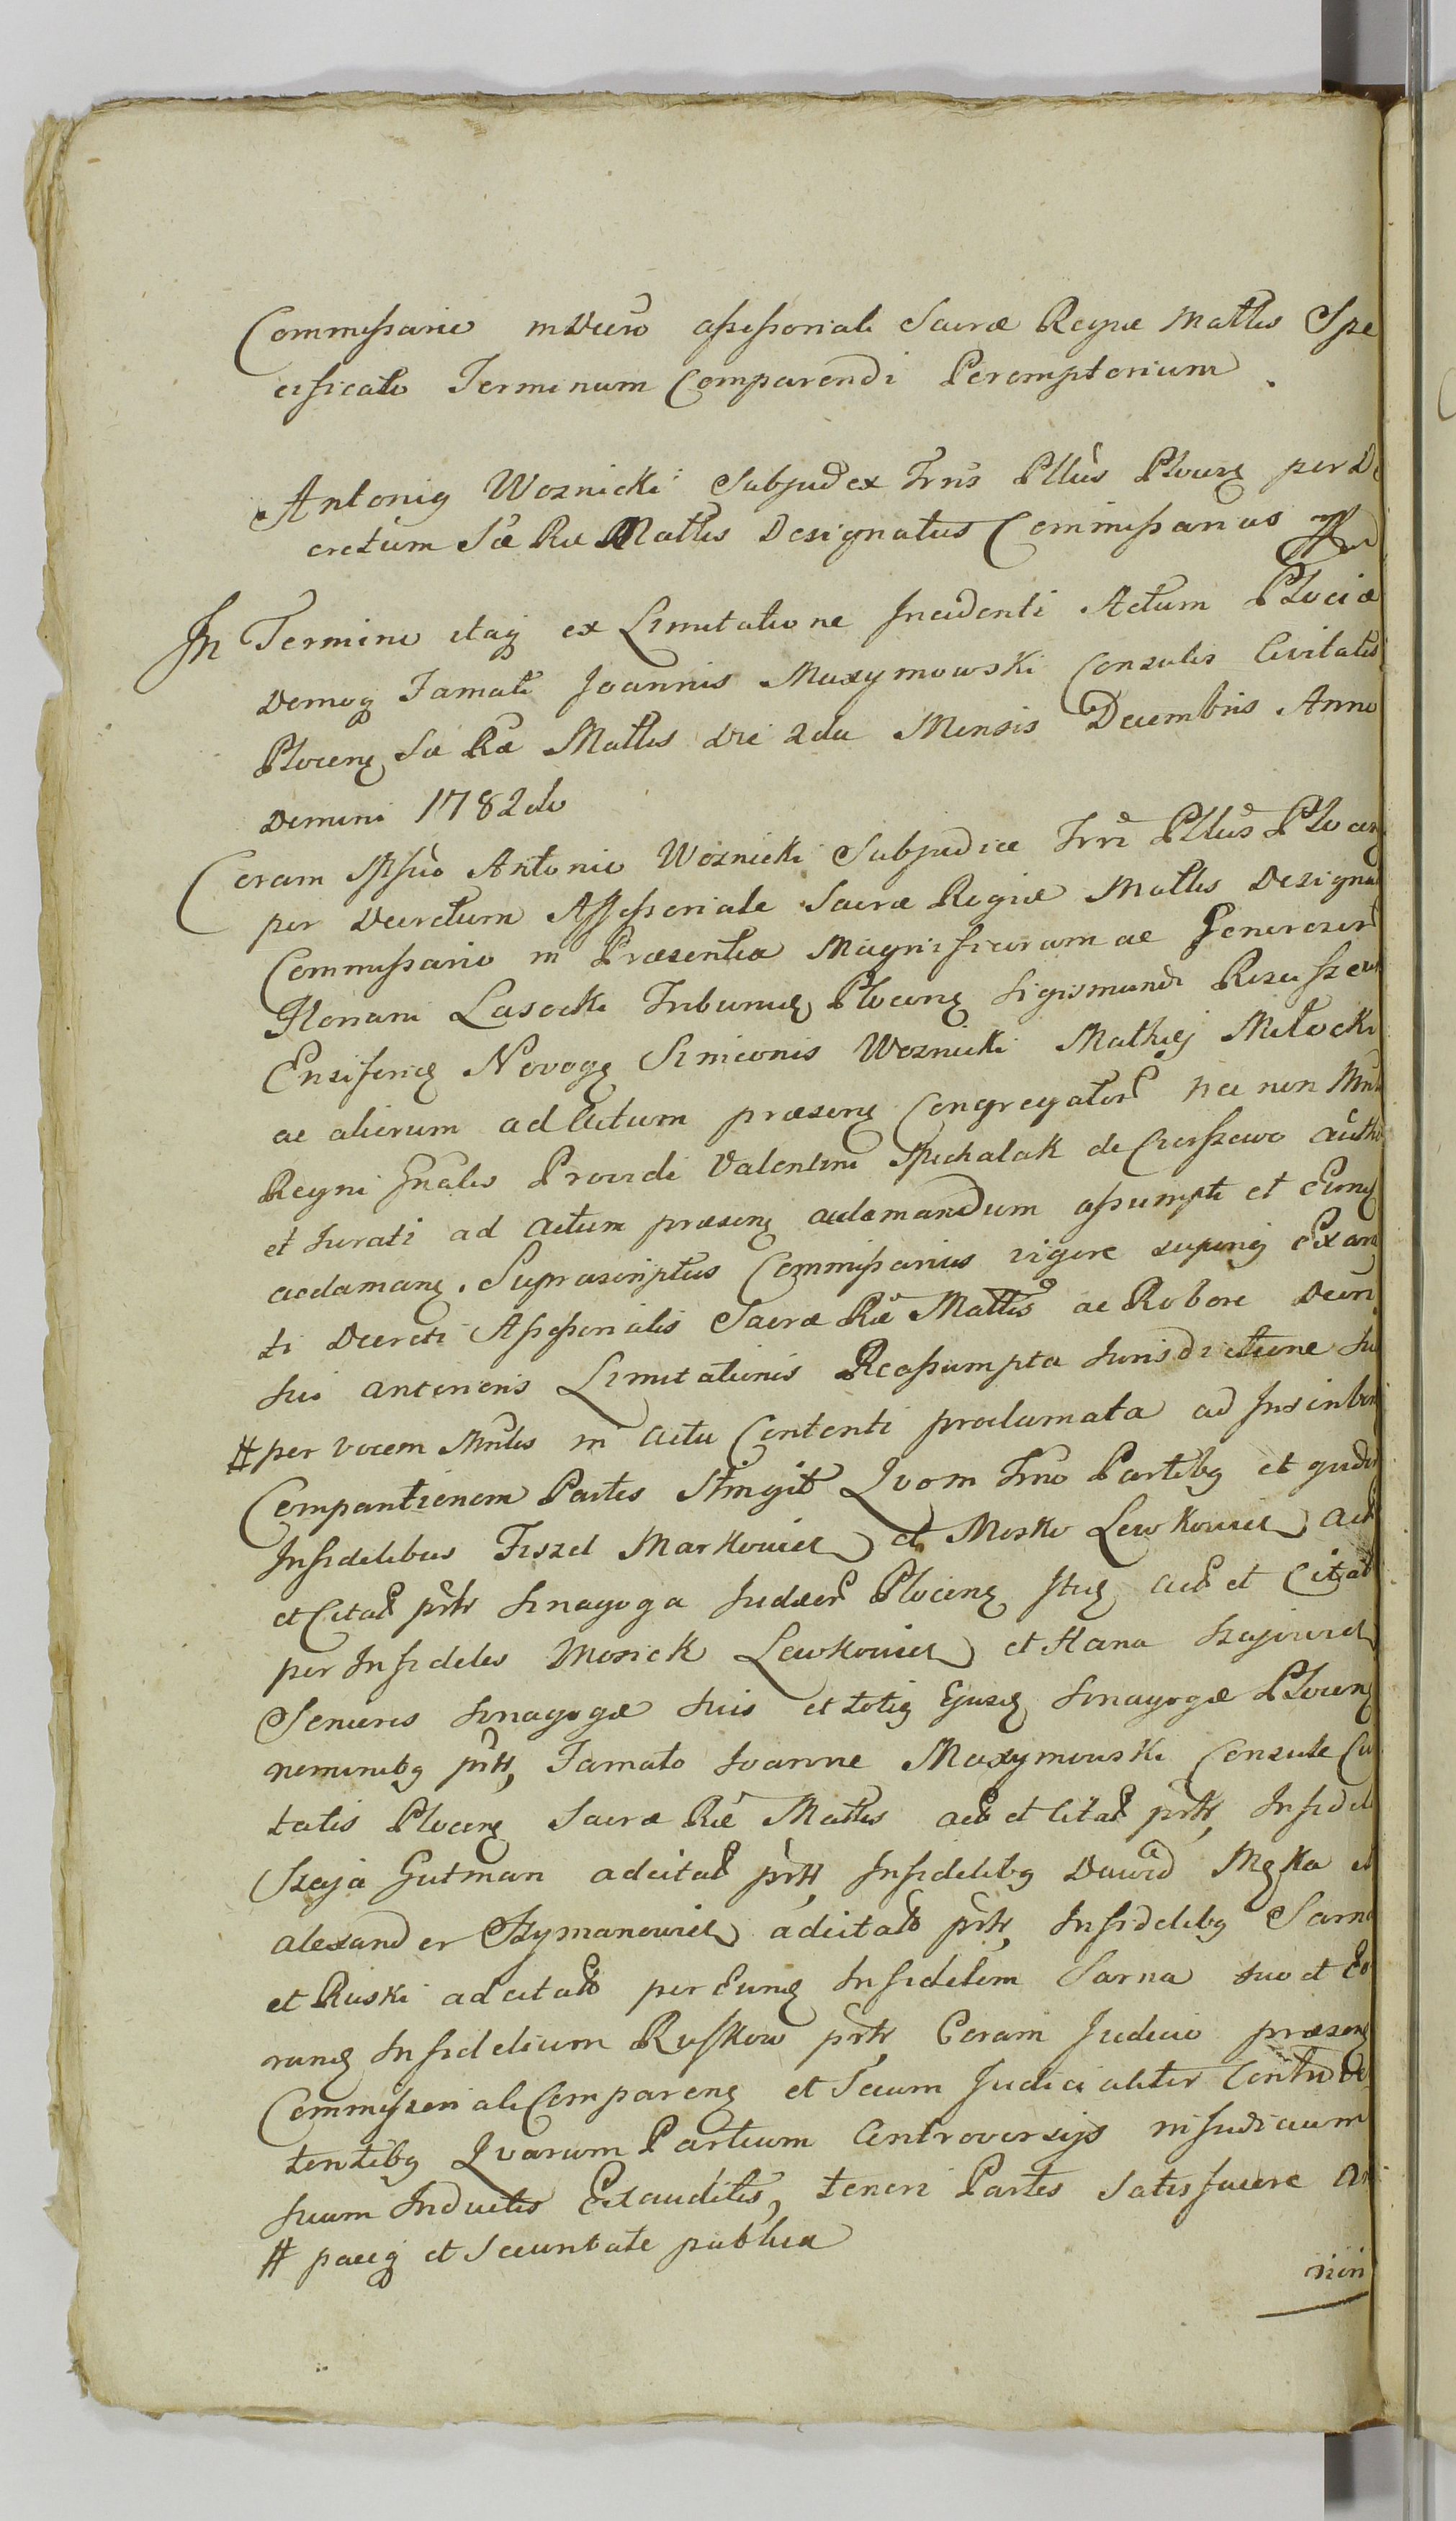 Commissario in Decro assessoriali Sacræ Regiæ Mattis Spe
cificato Terminum Comparendi Peremptorium.
Antonig Woznicki Subjudex Trris Pllis Plocens per De
cretum Sæ Ræ Mattis Designatus Commissarius
In Termino itaq ex Limitatione Incidenti Actum Plociæ
Domoq Famati Joannis Maxymowski Consulis Civitatis
Plocens Sæ Ræ Mattis die 2da Mensis Decembris Anno
Domini 1782do
Coram Antonio Woznicki Subjudice Trri Pllis Plocens
per Decretum Assessoriale Sacræ Regiæ Mattis Designa
Commissario in Præsentia Magnificorum ac Generosor
Floriani Lasocki Tribunid Plocens Sigismundi Rzeszew
Ensiferid Novog Simeonis Woznicki Mathiej Miłocki
ac aliorum ad Actum præsens Congregator nec non Mnl
Regni Gnalis Providi Valentini Michalak de Ciorszewo auth
et Jurati ad Actum præsens acclamandum assumpti et Eund
acclamans. Suprascriptus Commissarius vigore superig Exar
ti Decreti Assessorialis Sacræ Ræ Mattis ac Robore Decri
sui anterioris Limitationis Reassumpta Jurisdictione su
# per vocem Mnlis in actu Contenti proclamata ad Inscriben
Comparitionem Partes Quom Trno Partibg et quidem
Infidelibus Fiszel Markowicz et Mosko Lewkowicz act
et Citat prtr Sinagoga Judæor Plocens act et Citat
per Infideles Mosiek Lewkowicz et Hana Szajowicz
Seniores Sinagogæ suis et totig Ejusd Sinagogæ Plocens
nominibg prtt, Famato Joanne Maxymowski Consule Civi
tatis Plocens Sacræ Ræ Mattis act et Citat prtr, Infidel
Szaja Gutman adcitat prtt, Infidelibg Dawid Męka et
alexander Szymanowicz adcitato prtr, Infidelibg Sarna
et Ruski adcitato per Eund Infidelem Sarna suo et Eo
rund Infidelium Ruskow prtr Coram Judicio præsens
Commissoriali Comparens et Secum Judicialiter Contro
tentibg Quarum Partium Controversijs in Judicium
suum Inductis Exauditis, teneri Partes satisfacere
# paceq et securitate publica